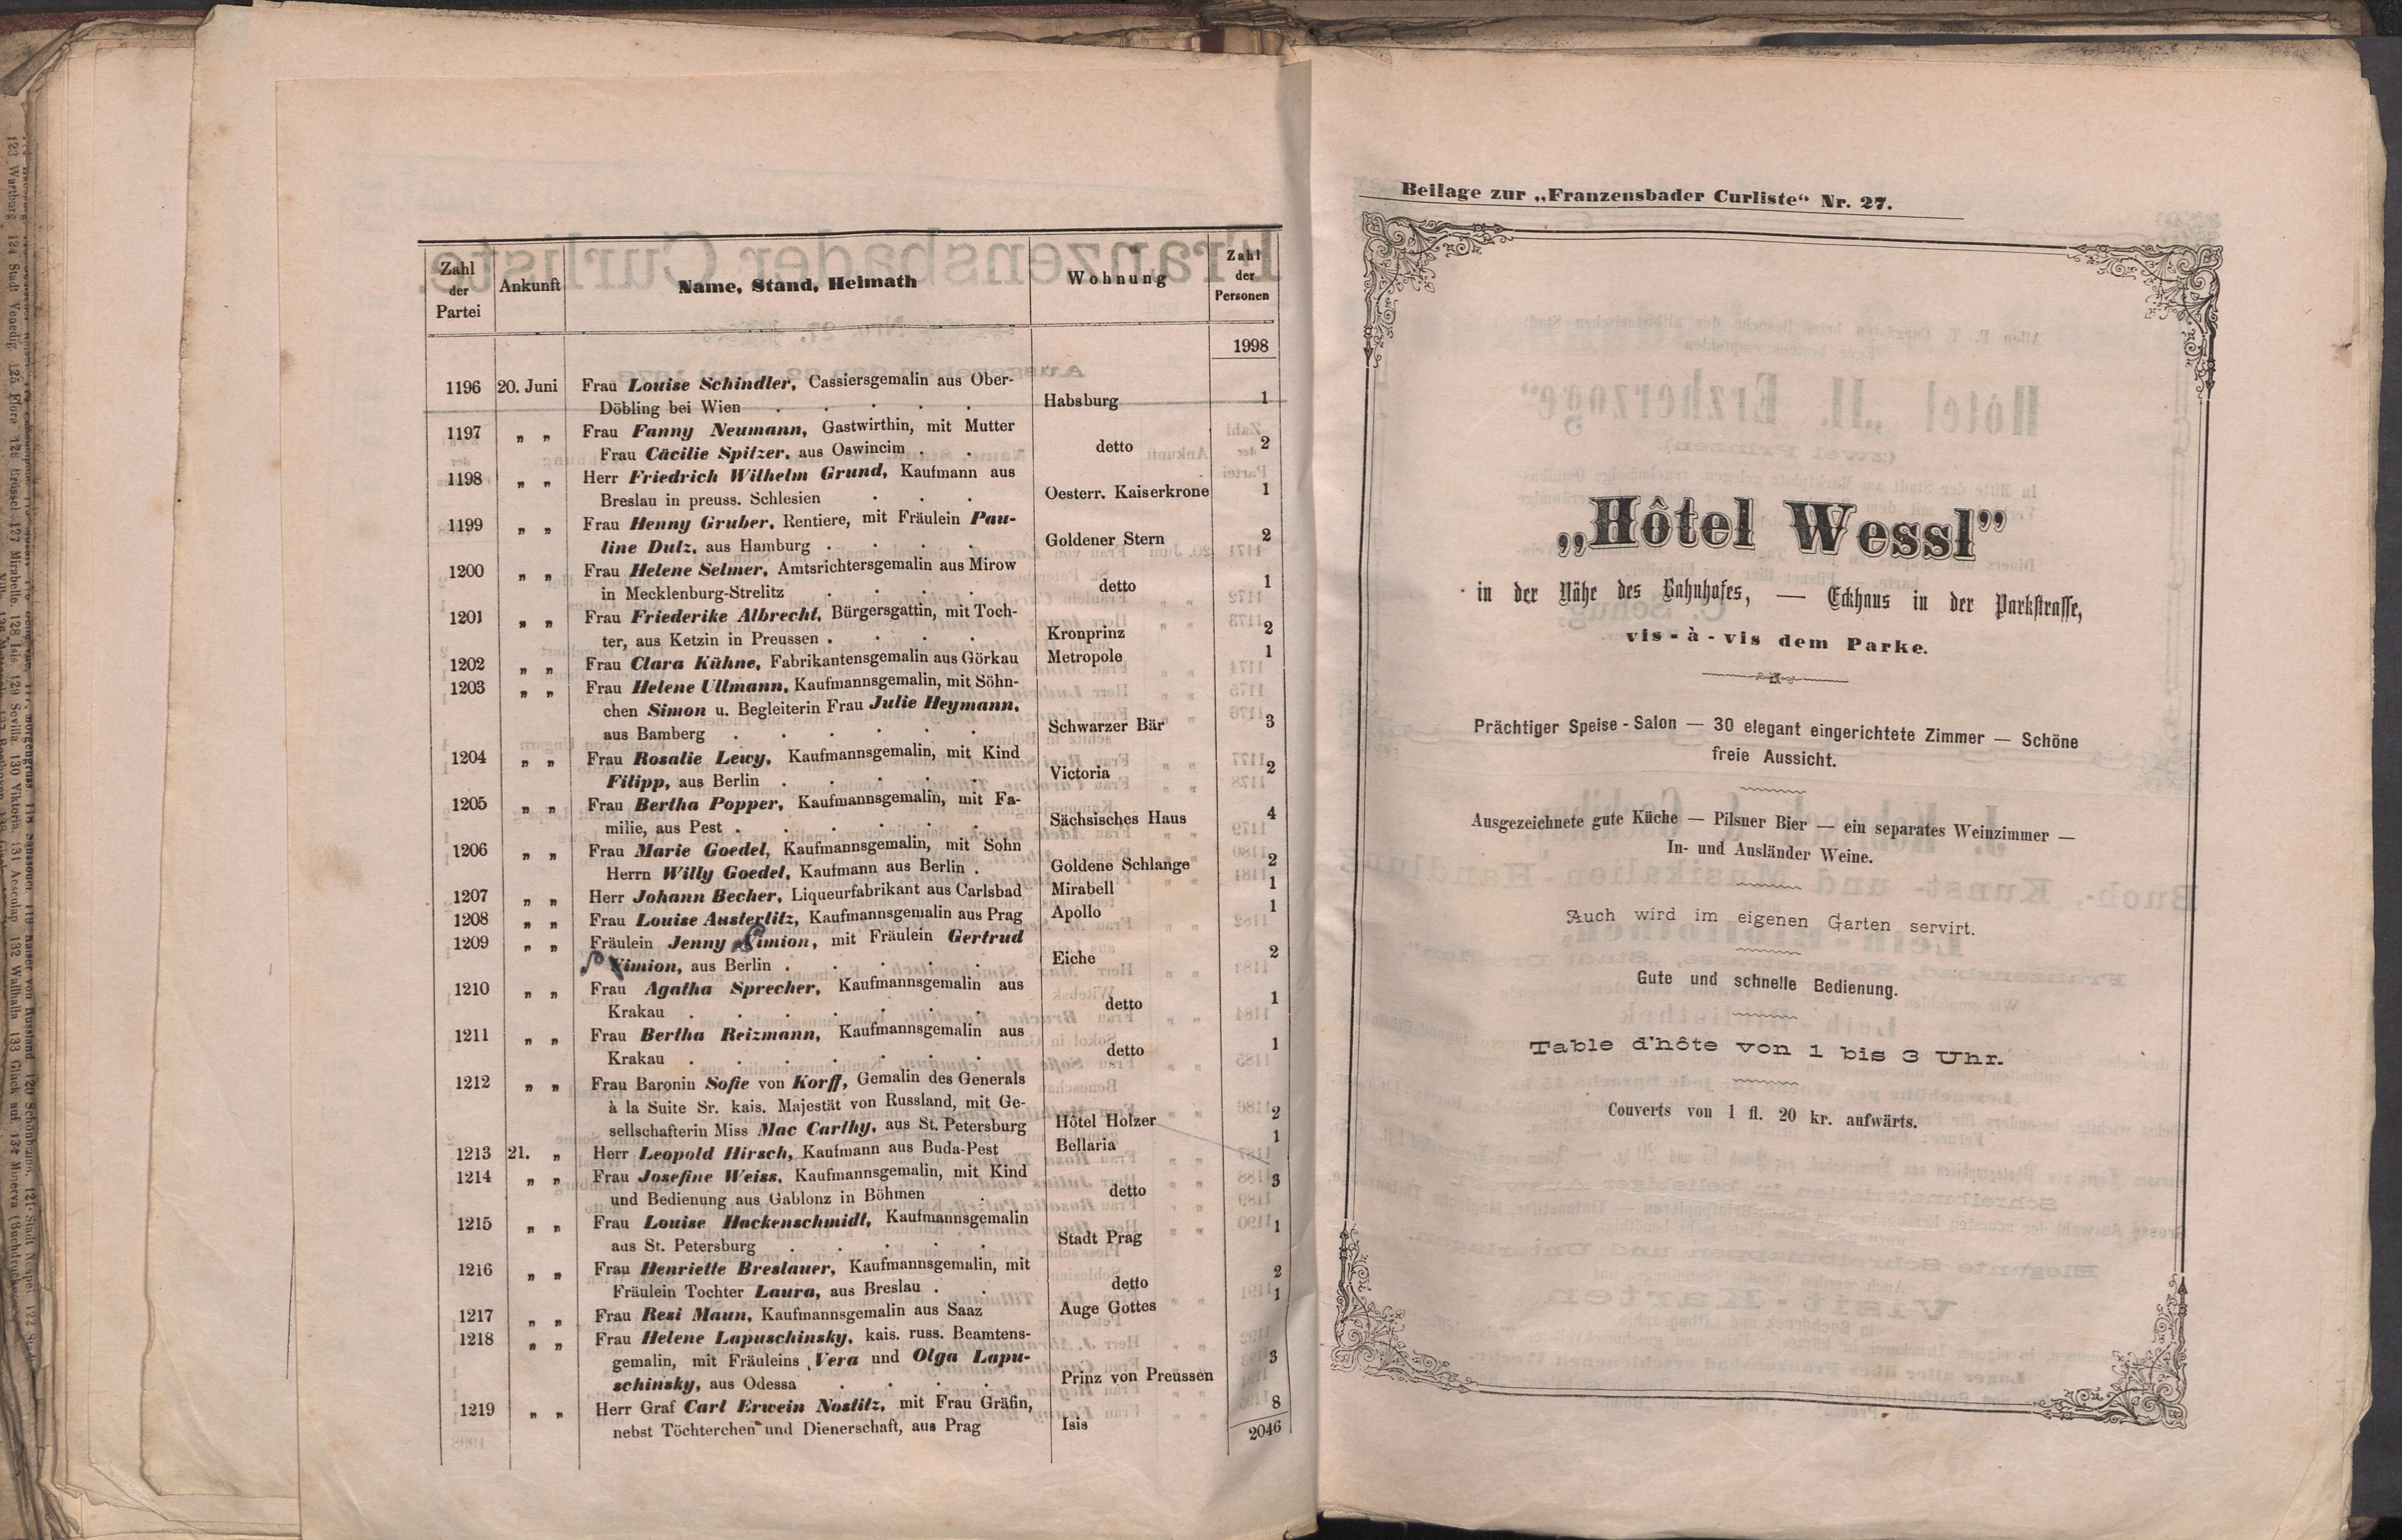 Zahl der Partei | Ankunft | Name, Stand, Heimath | Wohnung | Zahl der Personen
1998
1196 20. Juni Frau Louise Schindler, Cassiersgemalin aus Ober-
Döbling bei Wien . . . . . Habsburg 1
1197 „ „ Frau Fanny Neumann, Gastwirthin, mit Mutter
Frau Cäcilie Spitzer, aus Oswincim . . detto 2
1198 „ „ Herr Friedrich Wilhelm Grund, Kaufmann aus
Breslau in preuss. Schlesien . . . Oesterr. Kaiserkrone 1
1199 „ „ Frau Henny Gruber, Rentiere, mit Fräulein Pau-
line Dulz, aus Hamburg . . . . Goldener Stern 2
1200 „ „ Frau Helene Selmer, Amtsrichtersgemalin aus Mirow
in Mecklenburg-Strelitz . . . . detto 1
1201 „ „ Frau Friederike Albrecht, Bürgersgattin, mit Toch-
ter, aus Ketzin in Preussen . . . . Kronprinz 2
1202 „ „ Frau Clara Kühne, Fabrikantensgemalin aus Görkau Metropole 1
1203 „ „ Frau Helene Ullmann, Kaufmannsgemalin, mit Söhn-
chen Simon u. Begleiterin Frau Julie Heymann,
aus Bamberg . . . . . . Schwarzer Bär 3
1204 „ „ Frau Rosalie Lewy, Kaufmannsgemalin, mit Kind
Filipp, aus Berlin . . . . . Victoria 2
1205 „ „ Frau Bertha Popper, Kaufmannsgemalin, mit Fa-
milie, aus Pest . . . . . . Sächsisches Haus 4
1206 „ „ Frau Marie Goedel, Kaufmannsgemalin, mit Sohn
Herrn Willy Goedel, Kaufmann aus Berlin . Goldene Schlange 2
1207 „ „ Herr Johann Becher, Liqueurfabrikant aus Carlsbad Mirabell 1
1208 „ „ Frau Louise Austerlitz, Kaufmannsgemalin aus Prag Apollo 1
1209 „ „ Fräulein Jenny Simion, mit Fräulein Gertrud
Simion, aus Berlin . . . . . Eiche 2
1210 „ „ Frau Agatha Sprecher, Kaufmannsgemalin aus
Krakau . . . . . . . detto 1
1211 „ „ Frau Bertha Reizmann, Kaufmannsgemalin aus
Krakau . . . . . . . detto 1
1212 „ „ Frau Baronin Sofie von Korff, Gemalin des Generals
à la Suite Sr. kais. Majestät von Russland, mit Ge-
sellschafterin Miss Mac Carthy, aus St. Petersburg Hôtel Holzer 2
1213 21. „ Herr Leopold Hirsch, Kaufmann aus Buda-Pest Bellaria 1
1214 „ „ Frau Josefine Weiss, Kaufmannsgemalin, mit Kind
und Bedienung aus Gablonz in Böhmen . detto 3
1215 „ „ Frau Louise Hackenschmidt, Kaufmannsgemalin
aus St. Petersburg . . . . . Stadt Prag 1
1216 „ „ Frau Henriette Breslauer, Kaufmannsgemalin, mit
Fräulein Tochter Laura, aus Breslau . . detto 2
1217 „ „ Frau Resi Maun, Kaufmannsgemalin aus Saaz Auge Gottes 1
1218 „ „ Frau Helene Lapuschinsky, kais. russ. Beamtens-
gemalin, mit Fräuleins Vera und Olga Lapu-
schinsky, aus Odessa . . . . Prinz von Preussen 3
1219 „ „ Herr Graf Carl Erwein Nostitz, mit Frau Gräfin,
nebst Töchterchen und Dienerschaft, aus Prag Isis 8
2046
Beilage zur „Franzensbader Curliste“ Nr. 27.
„Hôtel Wessl”
in der Nähe des Bahnhofes, — Eckhaus in der Parkstrasse,
vis-à-vis dem Parke.
Prächtiger Speise-Salon — 30 elegant eingerichtete Zimmer — Schöne
freie Aussicht.
Ausgezeichnete gute Küche — Pilsner Bier — ein separates Weinzimmer —
In- und Ausländer Weine.
Auch wird im eigenen Garten servirt.
Gute und schnelle Bedienung.
Table d'hôte von 1 bis 3 Uhr.
Couverts von 1 fl. 20 kr. aufwärts.